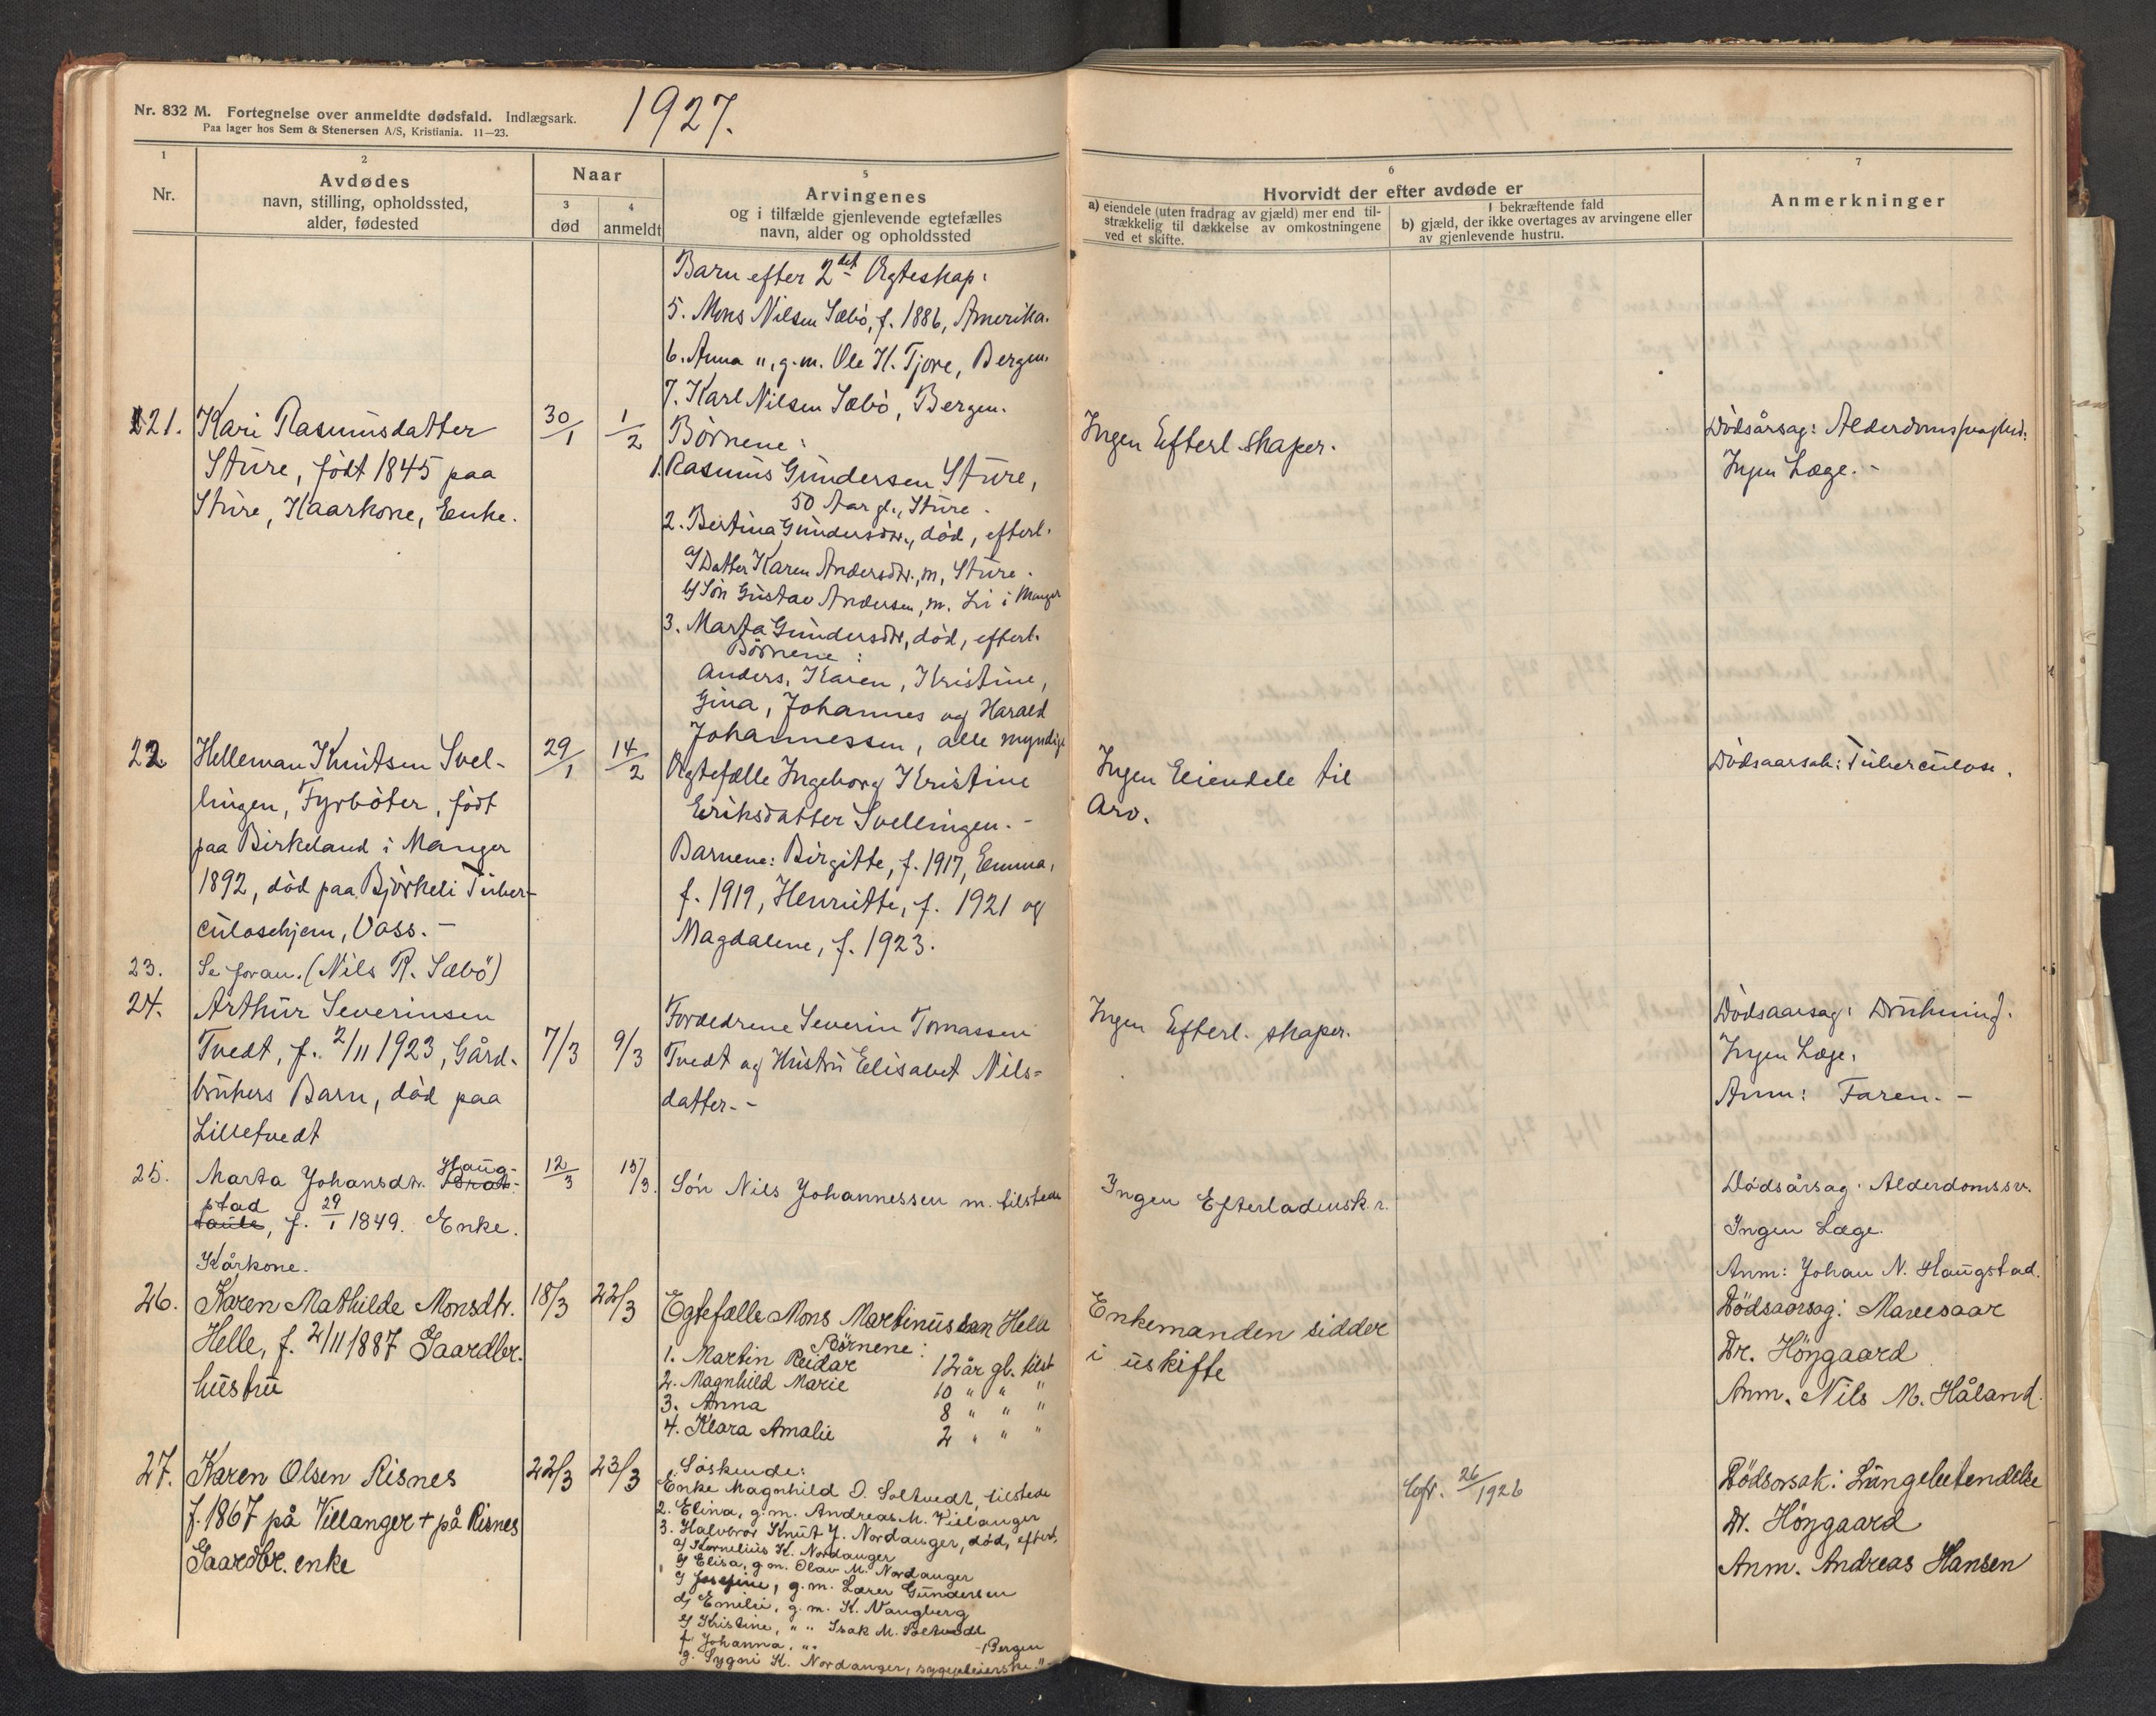 Nr. 832 M. Fortegnelse over anmeldte dødsfald. Indlægsark.
Paa lager hos Sem & Stenersen A/S, Kristiania. 11—23.
1927.
1
Nr.
2
Avdødes
navn, stilling, opholdssted,
alder, fødested
Naar
3
død
4
anmeldt
5
Arvingenes
og i tilfælde gjenlevende egtefælles
navn, alder og opholdssted
6
Hvorvidt der efter avdøde er
a) eiendele (uten fradrag av gjæld) mer end til-
strækkelig til dækkelse av omkostningene
ved et skifte.
I bekræftende fald
b) gjæld, der ikke overtages av arvingene eller
av gjenlevende hustru.
7
Anmerkninger
Barn efter 2det Ægteskap:
5. Mons Nilsen Sæbö, f. 1886, Amerika.
6. Anna ", g.m. Ole K. Tjore, Bergen.
7. Karl Nilsen Sæbö, Bergen.
21.
Kari Rasmusdatter
Sture, född 1845 paa
Sture, Kaarkone, Enke.
30/1
1/2
Börnene:
1. Rasmus Gundersen Sture,
50 Aar gl., Sture.
2. Bertina Gundersdtr., död, efterl.
a) Datter Karen Andersdtr., m, Sture.
b) Sön Gustav Andersen, m. Li i Manger
3. Marta Gundersdtr, död, efterl.
Börnene:
Anders, Karen, Kristine,
Gina, Johannes og Harald
Johannessen, alle myndige
Ingen Efterl.skaper.
Dödsårsag: Alderdomssvaghed.
Ingen Læge. -
22
Helleman Knutsen Svel-
lingen, Fyrböter, född
paa Birkeland i Manger
1892, död paa Björkeli Tuber-
culosehjem, Voss. -
29/1
14/2
Ægtefælle Ingeborg Kristine
Eriksdatter Svellingen. -
Barnene: Birgitte, f. 1917, Emma,
f. 1919, Henriette, f. 1921 og
Magdalene, f. 1923.
Ingen Eiendele til
Arv.
Dödsaarsak: Tuberculose.
23.
Se foran. (Nils R. Sæbö)
24.
Arthur Severinsen
Tvedt, f. 2/11 1923, Gård-
brukers Barn, död paa
Lilletvedt
7/3
9/3
Foreldrene Severin Tomassen
Tvedt og Hustru Elisabet Nils-
datter. -
Ingen Efterl. skaper.
Dödsaarsag: Drukning.
Ingen Læge.
Anm: Faren. -
25.
Marta Johansdtr. Haug-
stad, f. 29/1 1849. Enke.
Kårkone.
12/3
15/3.
Sön Nils Johannessen m. tilstede
Ingen Efterladensk.r.
Dödsårsag. Alderdomssv.
Ingen Læge.
Anm: Johan N. Haugstad.
26.
Karen Mathilde Monsdtr.
Helle, f. 2/11 1887 Gaardbr.
hustru
18/3
22/3
Egtefælle Mons Martinussen Helle
Börnene:
1. Martin Reidar 12 år gl. tilst
2. Magnhild Marie 10 " " "
3. Anna 8 " " "
4. Klara Amalie 2 " " "
Enkemanden sidder
i uskifte
Dödsaarsag: Mavesaar
Dr. Höygaard
Anm. Nils M. Håland.
27.
Karen Olsen Risnes
f. 1867 på Villanger + på Risnes
Gaardbr. enke
22/3
23/3
Söskende:
Enke Magnhild O. Soltvedt, tilstede
2. Elina, g.m. Andreas M. Villanger
3. Halvbror Knut J. Nordanger, död, efterl.
a) Kornelius K. Nordanger
b) Elisa, g.m. Olav M. Nordanger
c) Josefine, g.m. Lærer Gundersen
d) Emilie, g.m. K. Vangberg
e) Kristine, " " Isak M. Soltvedt
f. Johanna, " " Bergen
g. Sygni K. Nordanger, sygepleierske "
26/ 1926
Dödsorsak: Lungebetendelse
Dr. Höygaard
Anm. Andreas Hansen